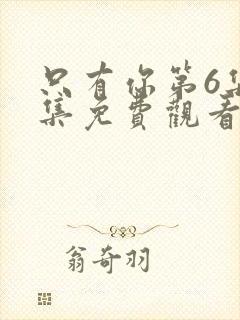 只有你第6集
集免費觀看
翁奇羽